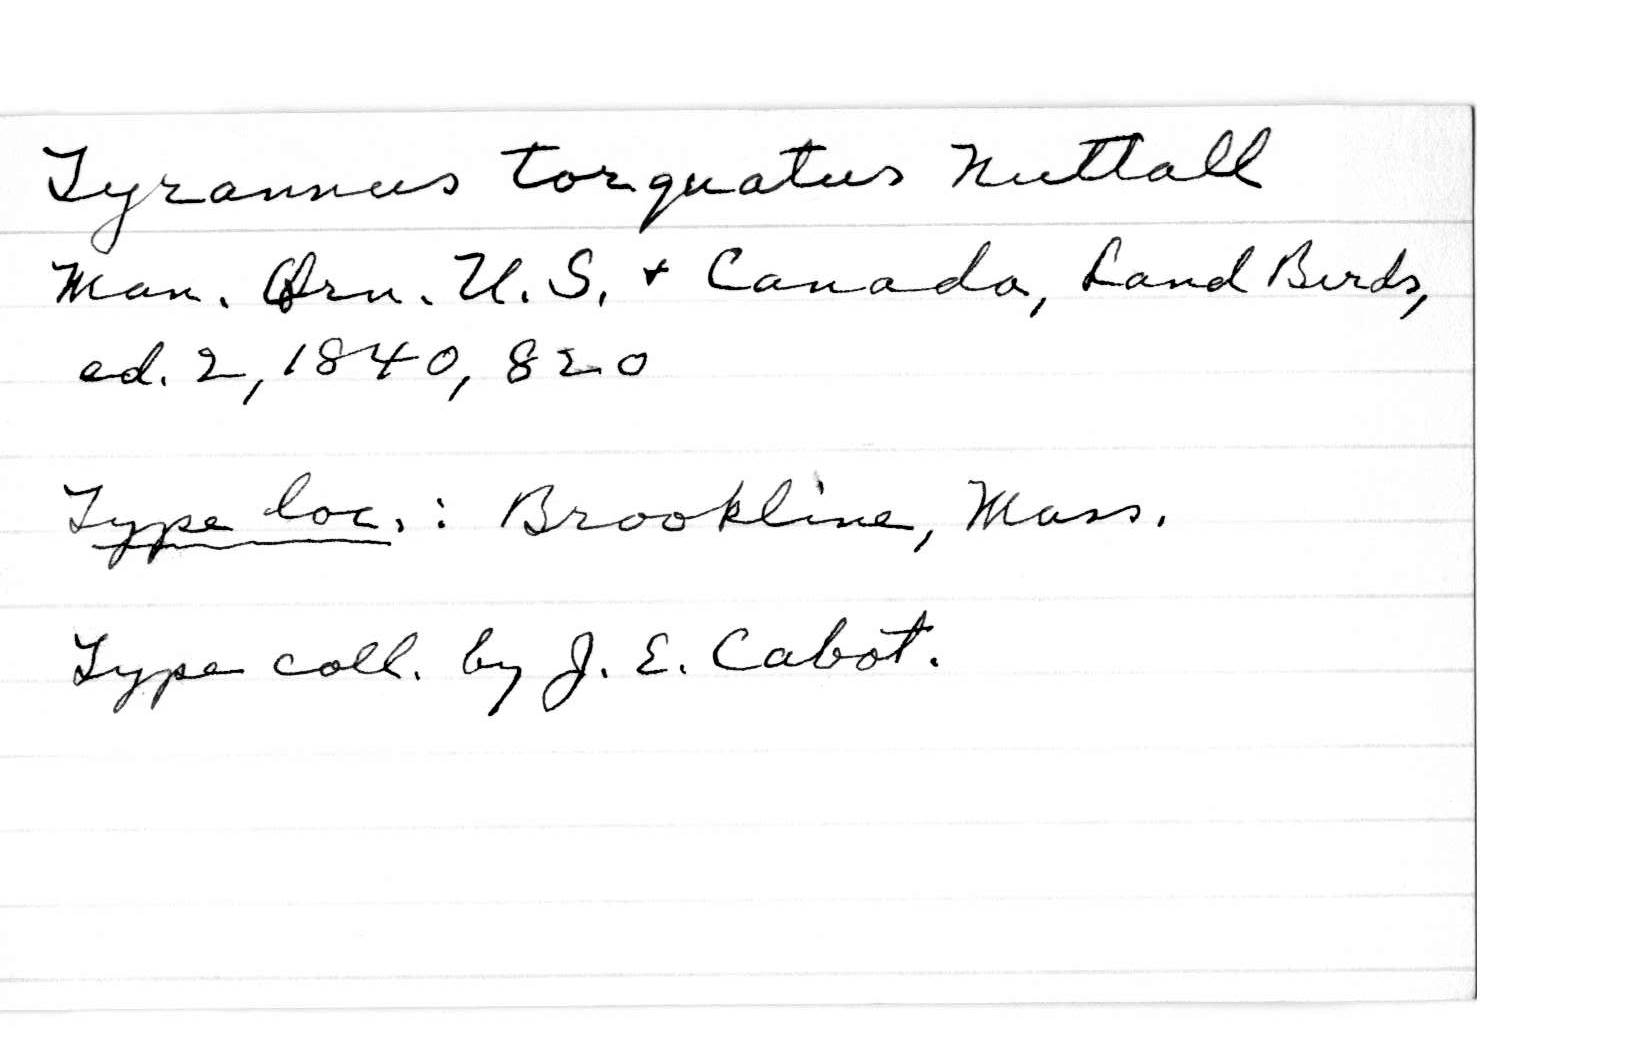 Tyrannus torquatus Nuttall
Man. Orn. U.S. + Canada, Land Birds,
ed. 2, 1840, 820
Type loc.: Brookline, Mass.
Type coll. by J. E. Cabot.